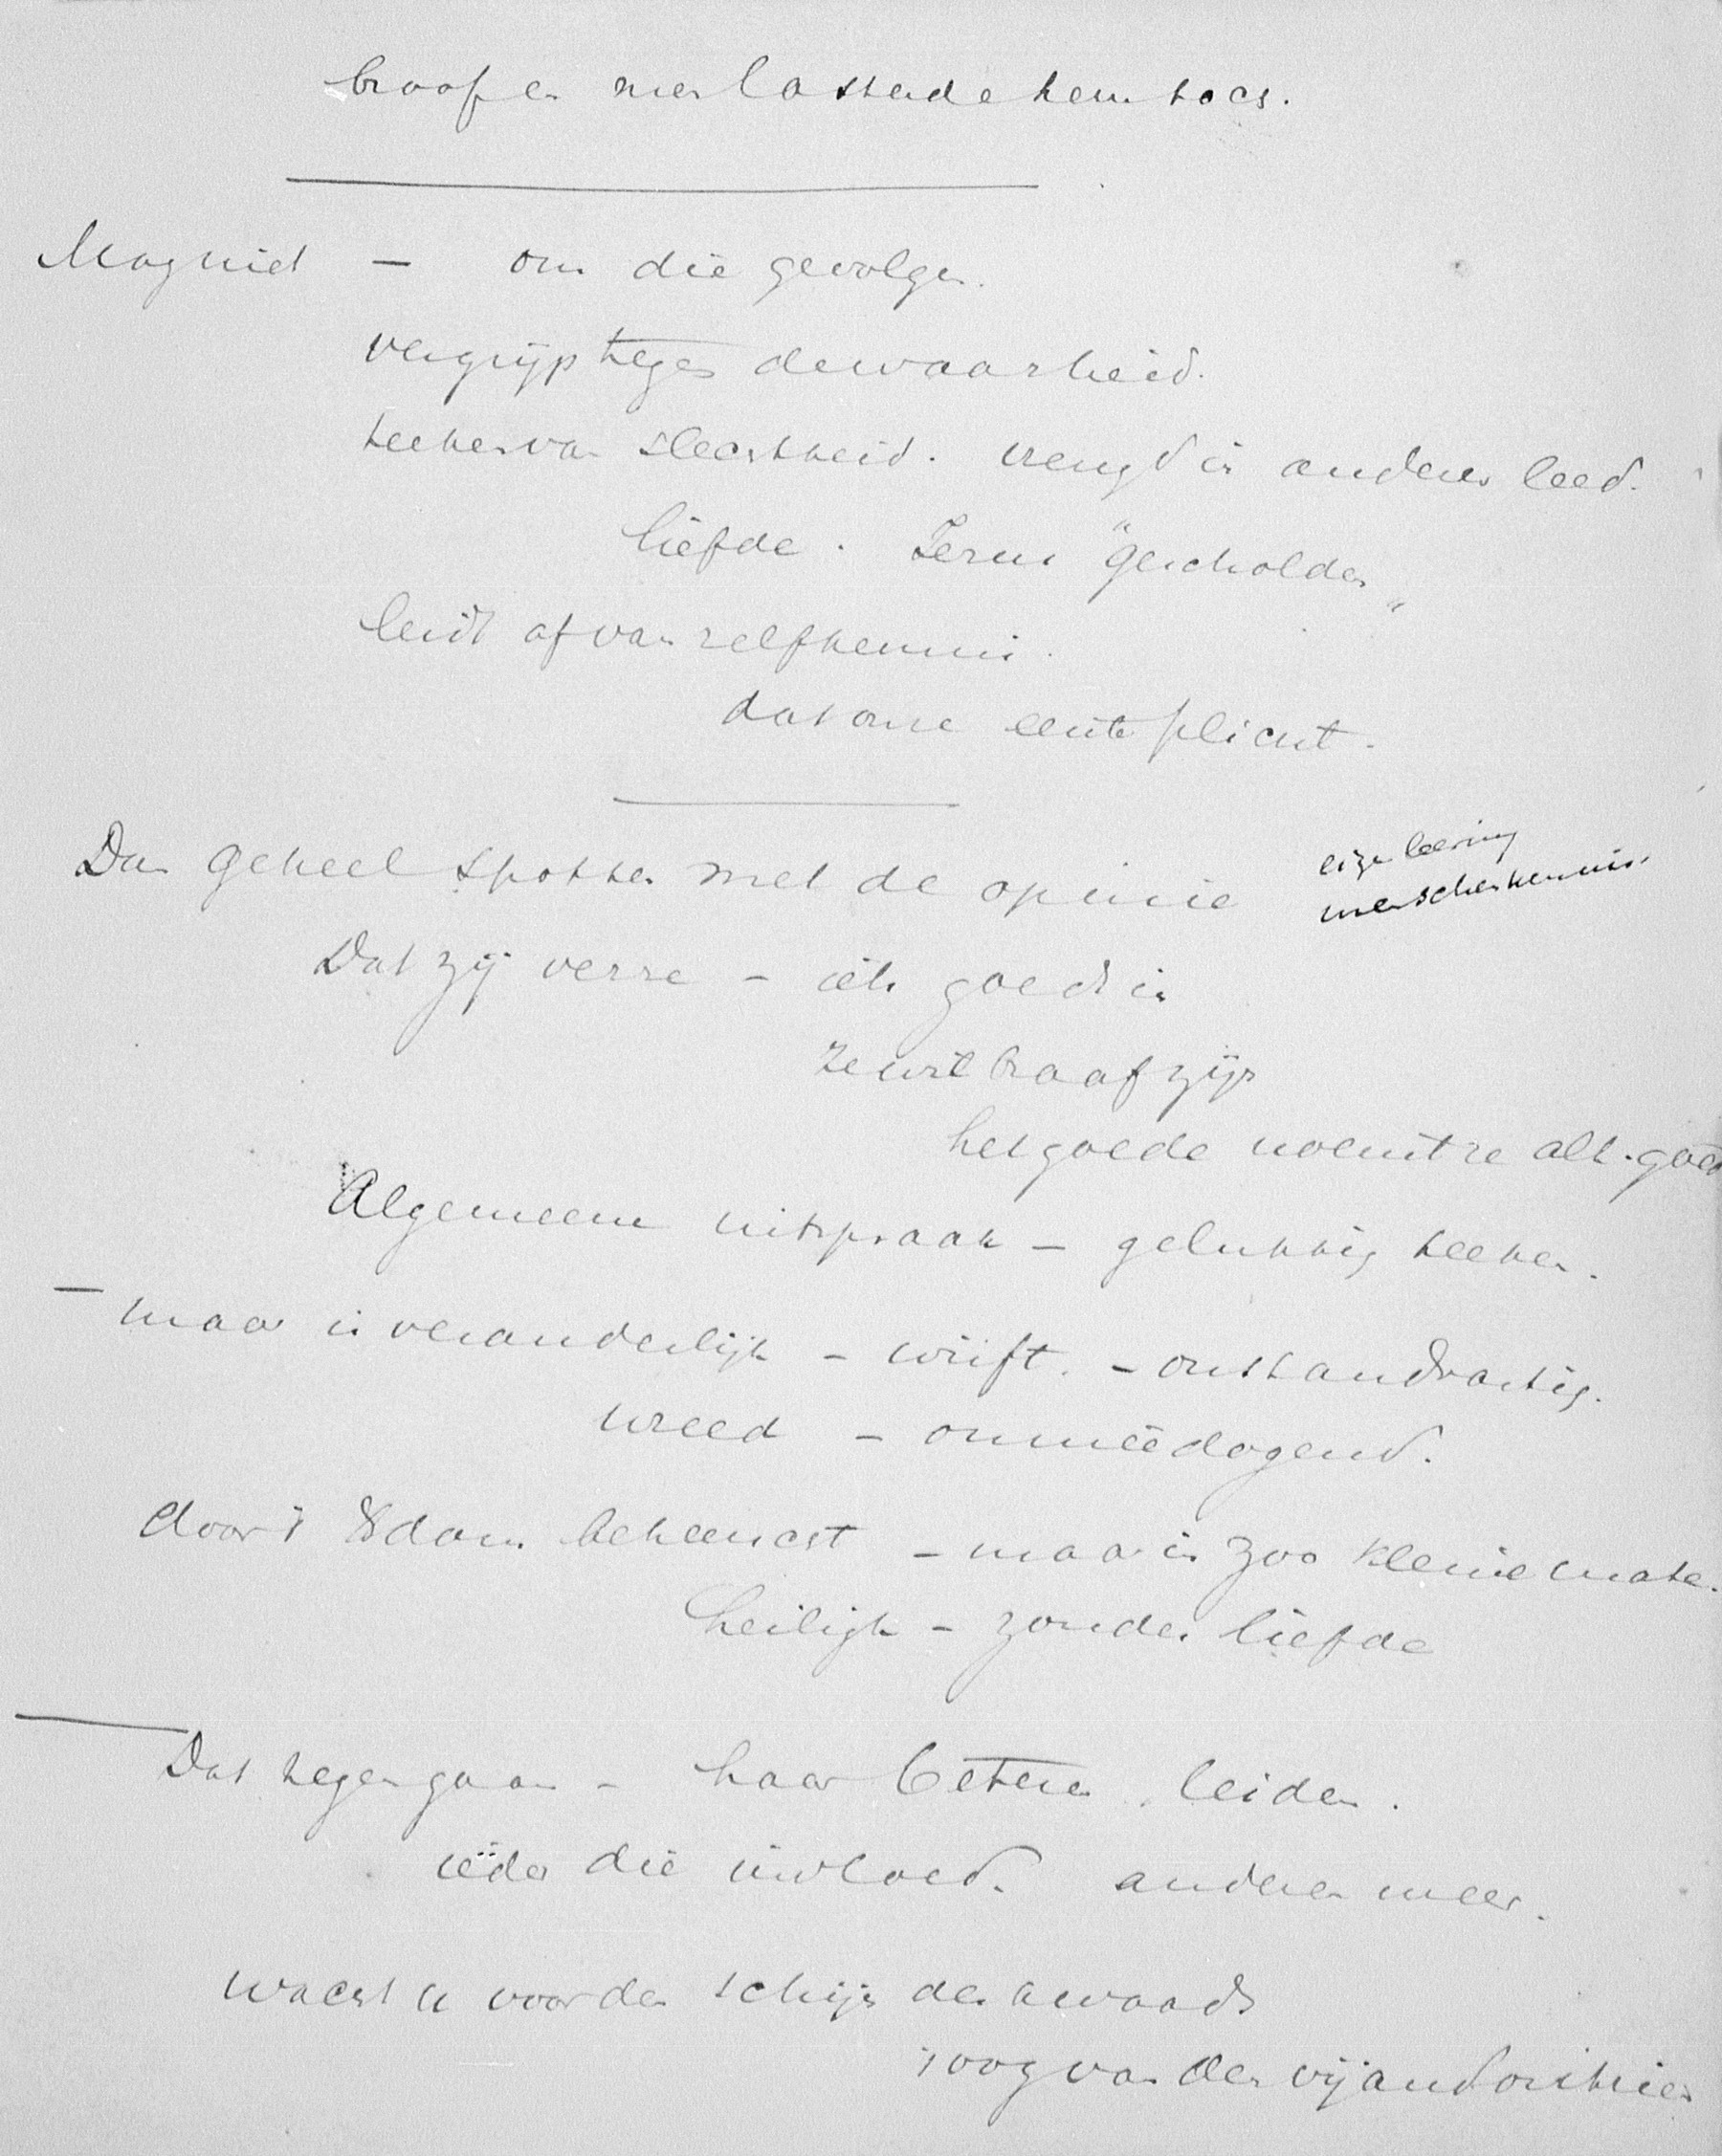 braaf en men lasterde hem toch.
Mag niet — om die gevolgen.
vergrijp tegen de waarheid.
teeken van slechtheid. vreugd in anderer leed.
liefde. Jezus "gescholden"
leidt af van zelfkennis.
dat onze eerste plicht.
Dan geheel spotten met de opinie
eigen leering
menschenkennis.
Dat zij verre – iets goeds in
ze wil braaf zijn
het goede noemt ze alt. goed
Algemeene uitspraak – gelukkig teeken.
— maar is veranderlijk – wuft. – onstandvastig.
wreed – onmeêdogend.
door 't Xdom beheerscht – maar in zoo kleine mate.
heiligh – zonder liefde
Dat tegengaan – haar beteren, leiden.
ieder die invloed. anderen meer.
wacht u voor den schijn des kwaads
't oog van den vijand